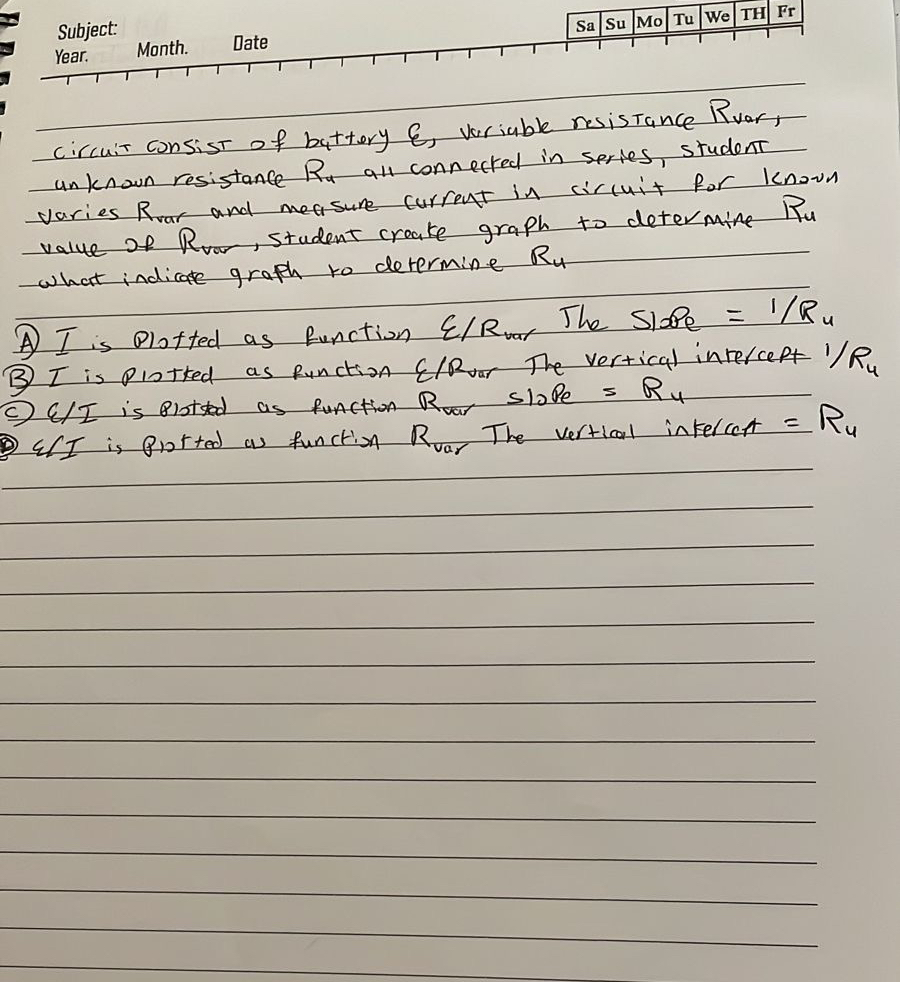 Subject:
Sa Su Mo Tu We TH Fr
Year. Month. Date
circuit consist of battery ℰ, variable resistance Rvar,
unknown resistance Ru all connected in series, student
varies Rvar and measure current in circuit for known
value of Rvar, student create graph to determine Ru
what indicate graph to determine Ru
A) I is Plotted as function ℰ/Rvar The Slope = 1/Ru
B) I is plotted as function ℰ/Rvar The vertical intercept 1/Ru
C) ℰ/I is Plotted as function Rvar slope = Ru
D ℰ/I is plotted as function Rvar The vertical intercept = Ru